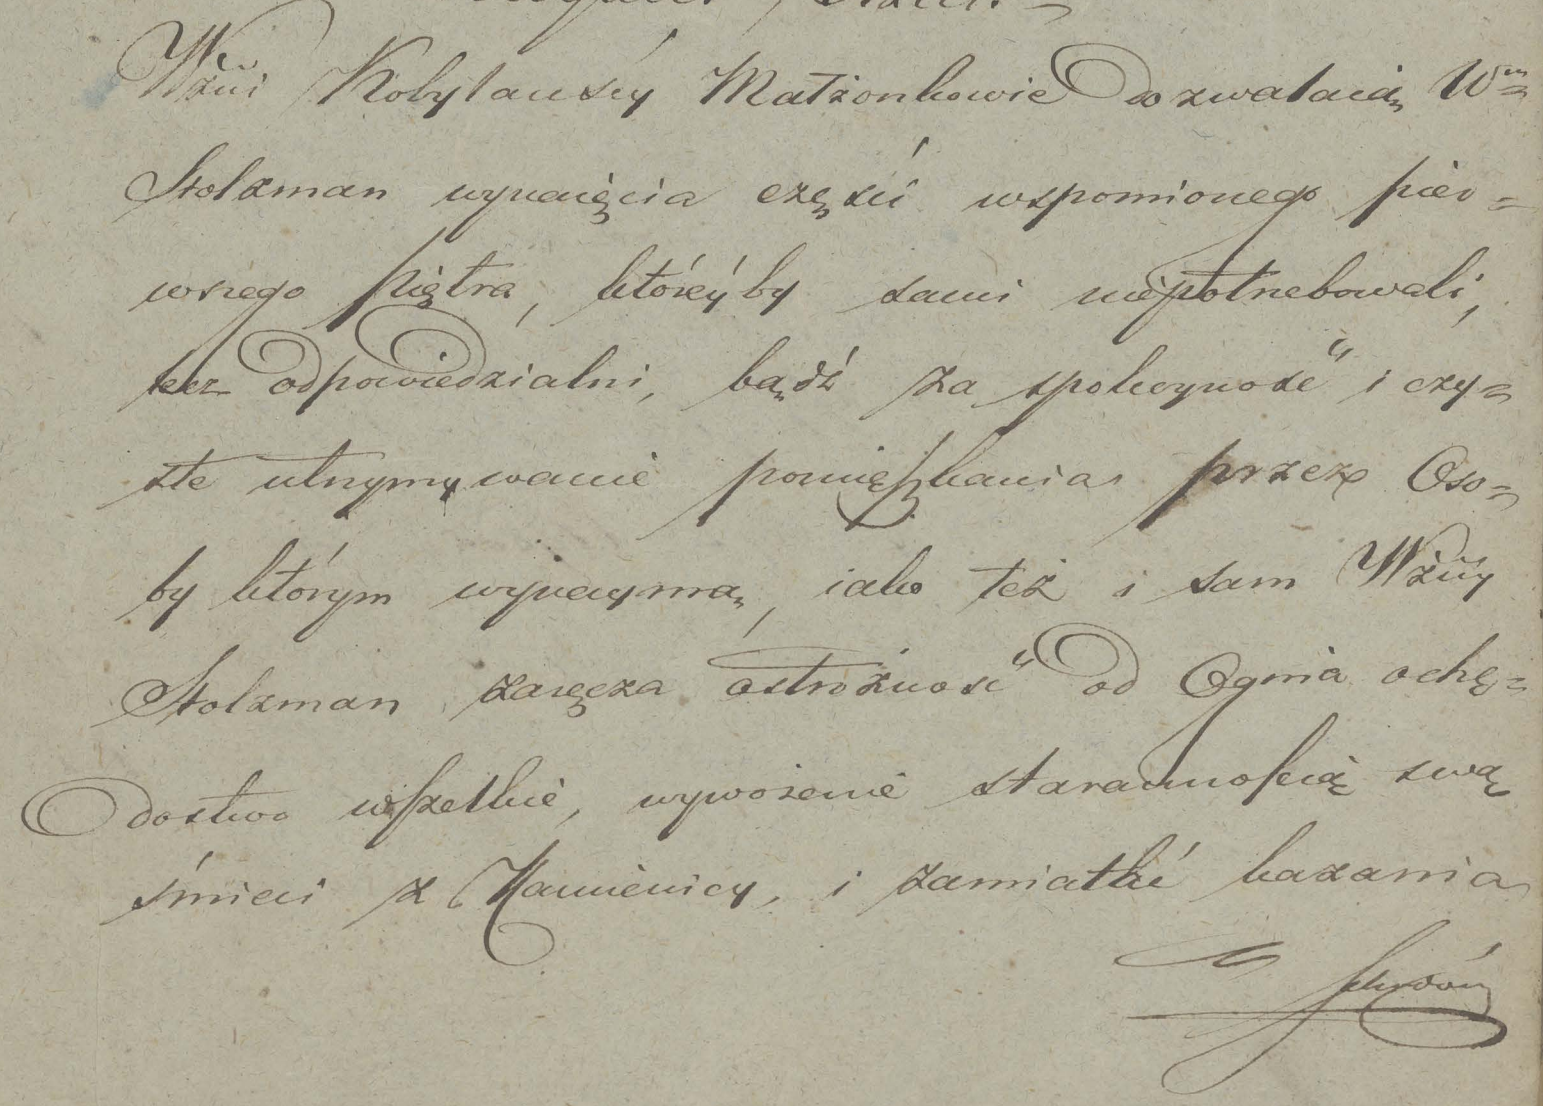 Wżni Kobylańscy Małżonkowie dozwalaią Wmu
Stolzman wynaięcia części wspomionego pier=
wszego piętra, któréyby sami niepotrzebowali,
lecz odpowiedzialni, bądź za spokoyność i czy=
ste utrzymywanie pomięszkania przez Oso=
by którym wynaymą, iako też i sam Wżny
Stolzman zaręcza ostrożność od Ognia ochę=
dostwo wszelkie, wywożenie starannością swą
śmieci z Kamienicy, i zamiatki kazania
schodów